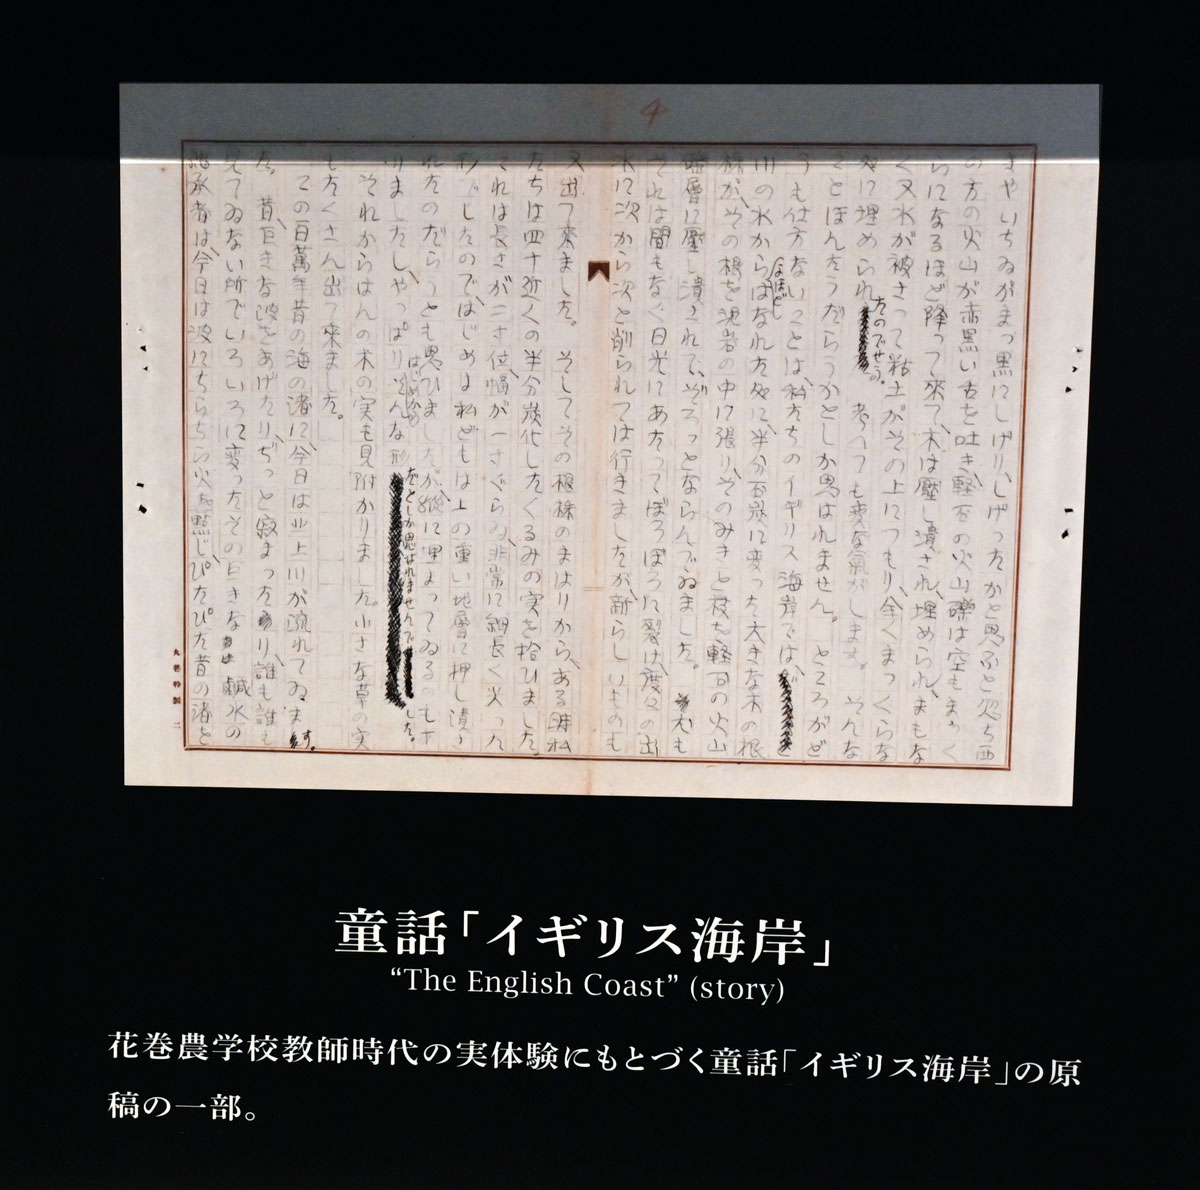 4
きやいちゐがまっ黒にしげり、しげったかと思ふと忽ち西
の方の火山が赤黒い舌を吐き、軽石の火山礫は空もまっく
らになるほど降って來て、木は壓し潰され、埋められ、まもな
く又水が被さって粘土がその上につもり、全くまっくらな
処に埋められたのでせう。考へても変な氣がします。そんな
ことほんたうだらうかとしか思はれません。ところがど
うも仕方ないことは、私たちのイギリス海岸では、
川の水からよほどはなれた処に、半分石炭に変った大きな木の根
株が、その根を泥岩の中に張り、そのみきと枝を軽石の火山
礫層に壓し潰されて、ぞろっとならんでゐました。尤も
それは間もなく日光にあたってぼろぼろに裂け、度々の出
水に次から次と削られては行きましたが、新らしいものも
又出て來ました。そしてその根株のまはりから、ある時私
たちは四十近くの半分炭化したくるみの実を拾ひました。
それは長さが二寸位、幅が一寸ぐらゐ、非常に細長く尖った
形でしたので、はじめは私どもは上の重い地層に押し潰さ
れたのだらうとも思ひましたが、縦に埋まってゐるのもあ
りましたし、やっぱりはじめからそんな形だとしか思はれませんでした。
それからはんの木の実も見附かりました。小さな草の実
もたくさん出て來ました。
この百萬年昔の海の渚に、今日は北上川が流れてゐます。
た。昔、巨きな波をあげたり、ぢっと寂まったり、誰も誰も
見てゐない所でいろいろに変ったその巨きな鹹水の
継承者は、今日は波にちらちら火を點じ、ぴたぴた昔の渚を
丸善特製 二
童話「イギリス海岸」
“The English Coast” (story)
花巻農学校教師時代の実体験にもとづく童話「イギリス海岸」の原
稿の一部。